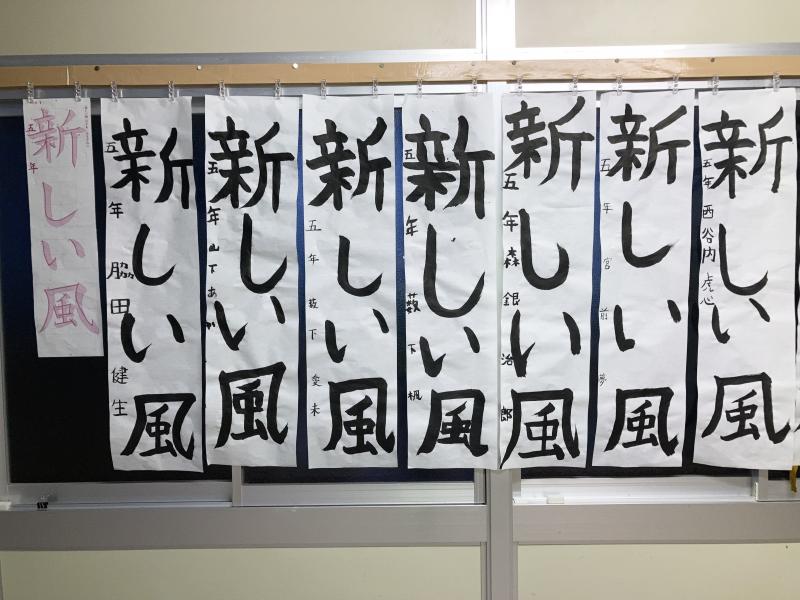 新しい風
五年
新しい風
五年 脇田健生
新しい風
五年 山下あ
新しい風
五年 薮下愛未
新しい風
五年 薮下楓
新しい風
五年 森銀治郎
新しい風
五年 宮前夢
新しい風
五年 西谷内虎心